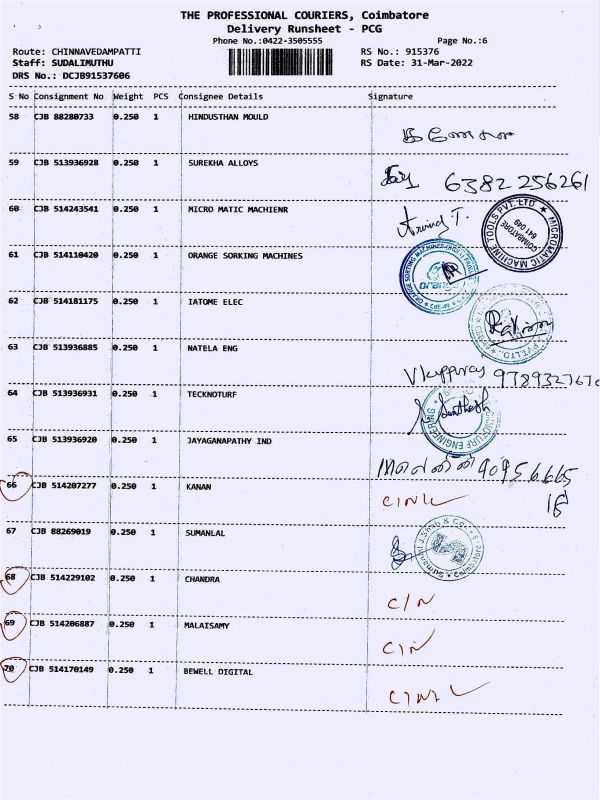 THE PROFESSIONAL COURIERS, Coimbatore
Delivery Runsheet - PCG
Phone No.:0422-3505555 Page No.:6
Route: CHINNAVEDAMPATTI RS No.: 915376
Staff: SUDALIMUTHU RS Date: 31-Mar-2022
DRS No.: DCJB91537606
S No Consignment No Weight PCS Consignee Details Signature
58 CJB 88280733 0.250 1 HINDUSTHAN MOULD
59 CJB 513936928 0.250 1 SUREKHA ALLOYS 6382 256261
60 CJB 514243541 0.250 1 MICRO MATIC MACHIENR Arvind T.
MICROMATIC MACHINE TOOLS PVT.LTD
COIMBATORE
641 049
61 CJB 514110420 0.250 1 ORANGE SORKING MACHINES
orange
62 CJB 514181175 0.250 1 IATOME ELEC
63 CJB 513936885 0.250 1 NATELA ENG
64 CJB 513936931 0.250 1 TECKNOTURF
65 CJB 513936920 0.250 1 JAYAGANAPATHY IND
66 CJB 514207277 0.250 1 KANAN
67 CJB 88269019 0.250 1 SUMANLAL
68 CJB 514229102 0.250 1 CHANDRA C/N
69 CJB 514206887 0.250 1 MALAISAMY C/N
70 CJB 514170149 0.250 1 BEWELL DIGITAL